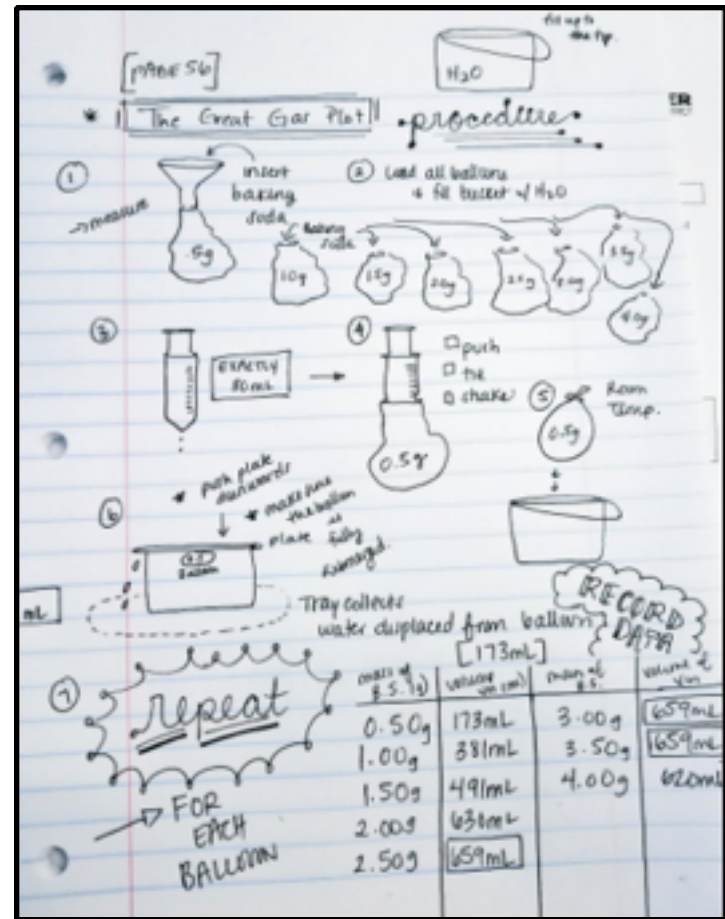 fill up to
the top.
H₂O
[PAGE 56]
* The Great Gas Plot
• procedure •
①
insert
baking
soda
→ measure
.5g
② Load all balloons
+ fill bucket w/ H₂O
Baking
soda
1.0g 1.5g 2.0g 2.5g 3.0g 3.5g
4.0g
③
EXACTLY
80mL
④
□ push
□ tie
□ shake
0.5g
⑤ Room
Temp.
0.5g
⑥
* push plate
downwards
* make sure
the balloon
plate is
fully
submerged.
Balloon
mL
Tray collects
water displaced from balloon
[173mL]
RECORD
DATA
⑦ repeat
→ FOR
EACH
BALLOON
mass of B.S. (g) volume mass of B.S. volume of
0.50g 173mL 3.00g 659mL
1.00g 381mL 3.50g 659mL
1.50g 491mL 4.00g 620mL
2.00g 630mL
2.50g 659mL